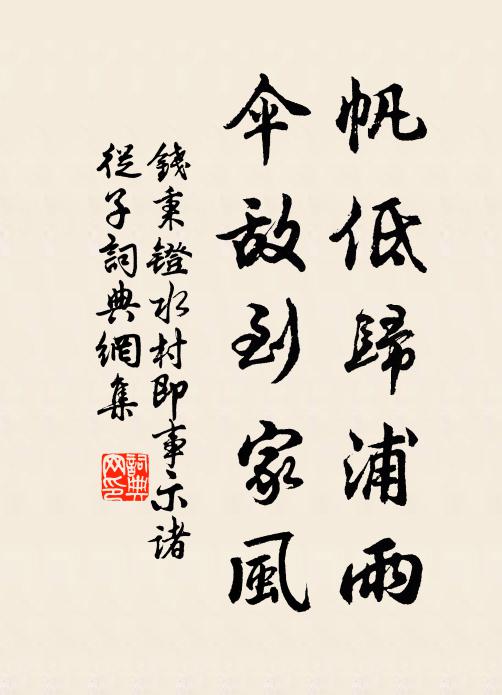 帆低歸浦雨
伞敌到家風
錢秉镫水村即事示諸
從子詞典網集
詞典
网印